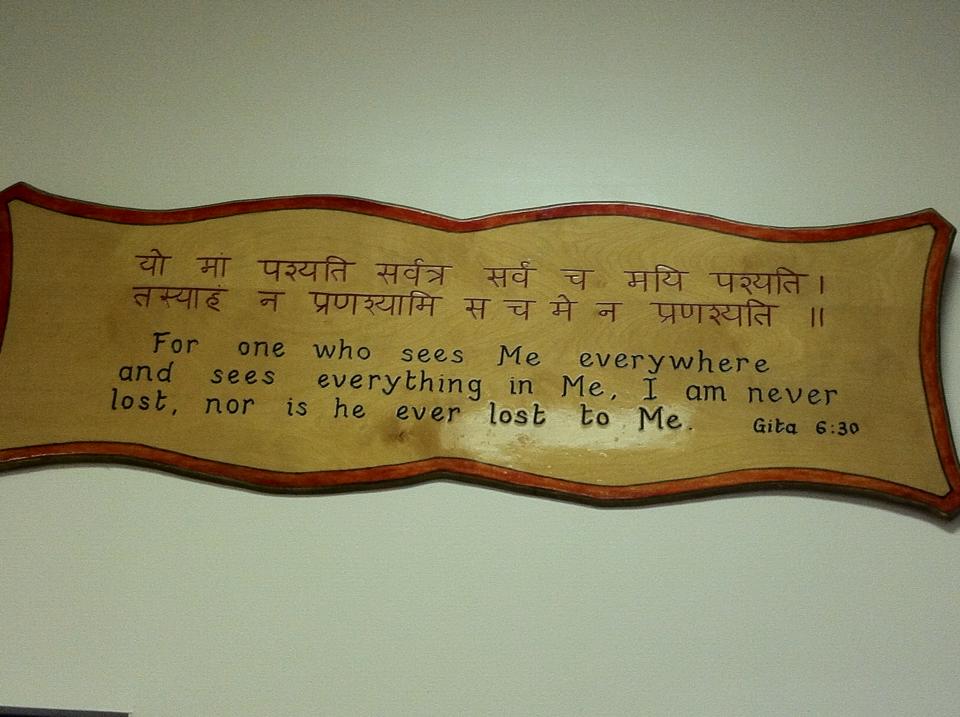 यो मां पश्यति सर्वत्र सर्वं च मयि पश्यति ।
तस्याहं न प्रणश्यामि स च मे न प्रणश्यति ॥
For one who sees Me everywhere
and sees everything in Me, I am never
lost, nor is he ever lost to Me.
Gita 6:30